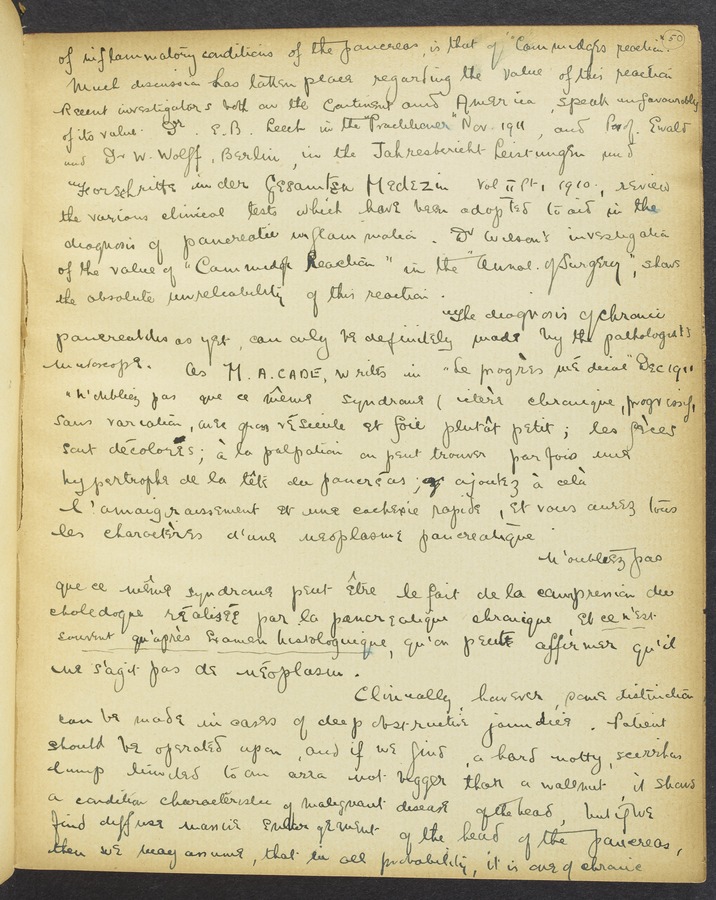 50
of inflammatory conditions of the pancreas, is that of "Cammidges reaction".
Much discussion has taken place regarding the value of this reaction
Recent investigators both on the Continent and America, speak unfavourably
of its value. Dr. E.B. Leech in the "Practitioner" Nov. 1911, and Prof. Ewald
and Dr W. Wolff, Berlin, in the Jahresbericht Leistungen und
Forschritte in der Gesamten Medezin Vol II Pt 1, 1910, review
the various clinical tests which have been adopted to aid in the
diagnosis of pancreatic inflammation. Dr Wilson's investigation
of the value of "Cammidge Reaction" in the "Annal. of Surgery", shows
the absolute unreliability of this reaction.
The diagnosis of chronic
pancreatitis as yet, can only be definitely made by the pathologist's
microscope. As M. A. CADE, writes in "Le progrès médical" Dec 1911
"N'oubliez pas que ce même syndrome (ictère chronique, progressif,
sans variation, avec gros vésicule et foie plutôt petit; les fèces
sont décolorés; à la palpation on peut trouver parfois une
hypertrophe de la tête du pancréas; ajoutez à celà
l'amaigraissement et une cachexie rapide, et vous aurez tous
les charactères d'une neoplasme pancreatique
N'oubliez pas
que ce même syndrome peut être le fait de la compression du
choledoque réalisée par la pancreatique chronique, et ce n'est
souvent qu'après Examen histologuique, qu'on peut affirmer qu'il
ne s'agit pas de néoplasm.
Clinically, however, some distinction
can be made in cases of deep obstructive jaundice. Patient
should be operated upon, and if we find, a hard notty, scirrhus
lump limited to an area not bigger than a wallnut, it shows
a condition characteristic of malignant disease of the head, but if we
find diffuse massive enlargement of the head of the pancreas,
then we may assume, that in all probability, it is one of chronic